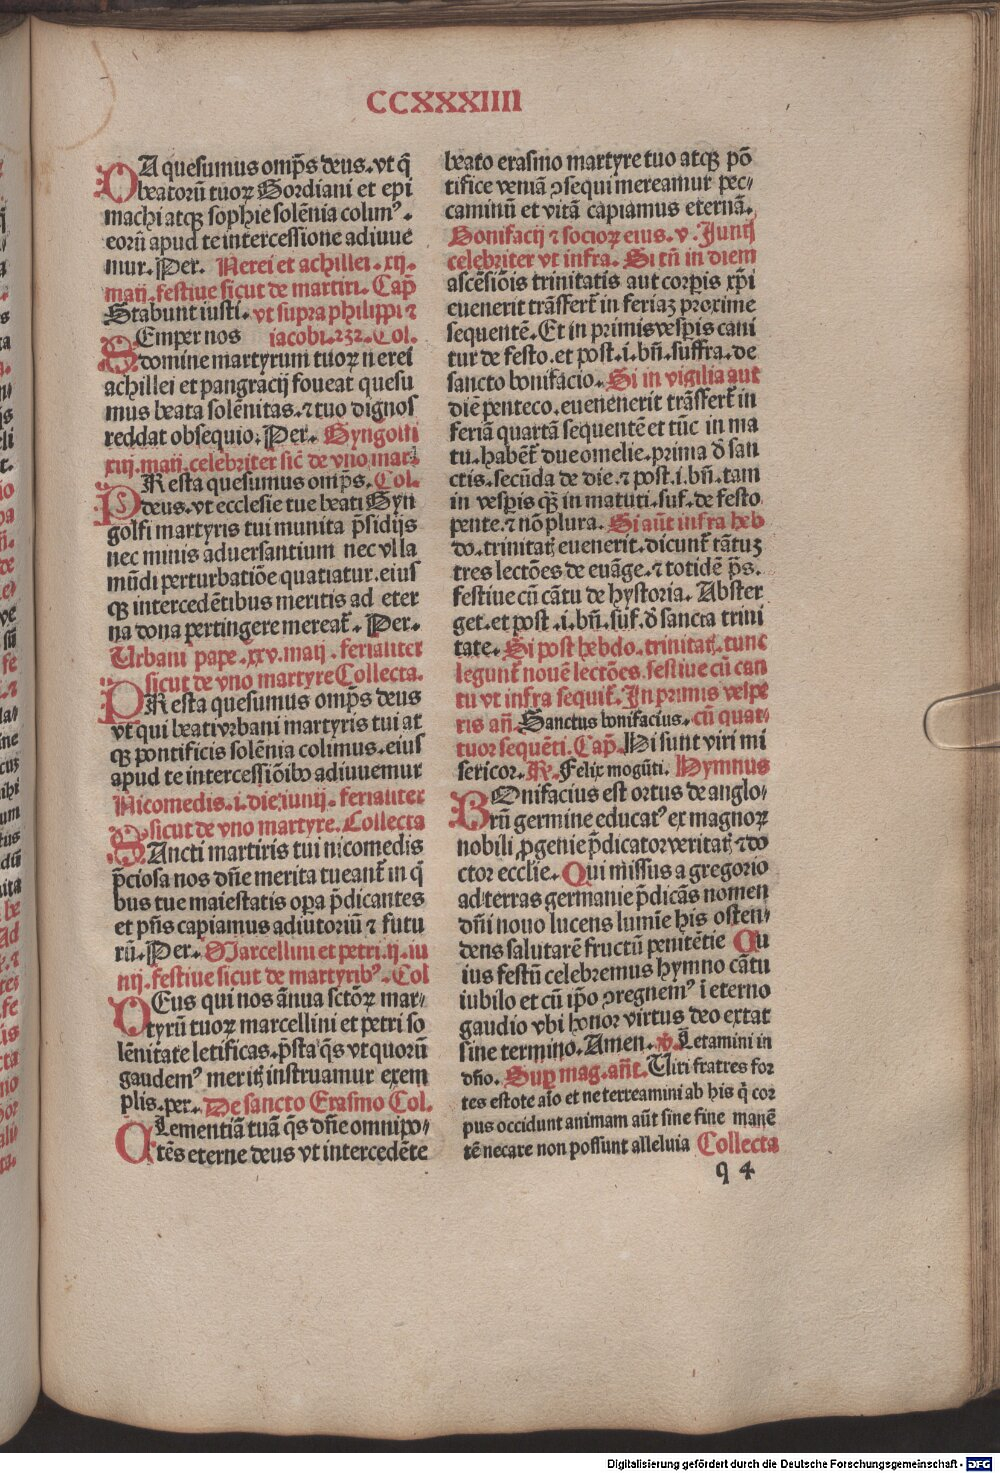 CCXXXIIII
DA quesumus omp̄s deus. vt q̄
beatorū tuoꝝ Gordiani et epi
machi atqꝫ sophie solēnia colimꝰ.
eorū apud te intercessione adiuue
mur. Per. Nerei et achillei. xij.
maij. festiue sicut de martiri. Cap̄
Stabunt iusti. vt supra philippi ⁊
SEmper nos iacobi. 232. Col.
domine martyrum tuoꝝ nerei
achillei et pangracij foueat quesu
mus beata solēnitas. ⁊ tuo dignos
reddat obsequio. Per. Gyngolfi
xiij. maij. celebriter sic̄ de vno mar.
PResta quesumus omp̄s. Col.
deus. vt ecclesie tue beati Gyn
golfi martyris tui munita p̄sidijs
nec minis aduersantium nec vlla
mūdi perturbatiōe quatiatur. eius
qꝫ intercedētibus meritis ad eter
na dona pertingere mereat᷑. Per.
Urbani pape. xxv. maij. ferialiter
sicut de vno martyre Collecta.
PResta quesumus omp̄s deus
vt qui beati vrbani martyris tui at
qꝫ pontificis solēnia colimus. eius
apud te intercessiōibꝰ adiuuemur
Nicomedis. i. die iunij. ferialiter
sicut de vno martyre. Collecta
SAncti martiris tui nicomedis
p̄ciosa nos dn̄e merita tueant᷑ in q̄
bus tue maiestatis opa p̄dicantes
et pn̄s capiamus adiutoriū ⁊ futu
rū. Per. Marcellini et petri. ij. iu
nij. festiue sicut de martyribꝰ. Col
DEus qui nos ānua sctōꝝ mar-
tyrū tuoꝝ marcellini et petri so
lēnitate letificas. p̄sta q̄s vt quorū
gaudemꝰ meritꝭ instruamur exem
plis. per. De sancto Erasmo Col.
CLementiā tuā q̄s dn̄e omnipo-
tēs eterne deus vt intercedēte
beato erasmo martyre tuo atqꝫ pō
tifice veniā ꝯsequi mereamur pec-
caminū et vitā capiamus eternā.
Bonifacij ⁊ socioꝝ eius. v. Junij
celebriter vt infra. Si tn̄ in diem
ascēsiōis trinitatis aut corpis xp̄i
euenerit trāsfert᷑ in feriaꝫ proxime
sequentē. Et in primis vesp̄is cani
tur de festo. et post. i. bn̄. suffra. de
sancto bonifacio. Si in vigilia aut
diē penteco. euenenerit trāsfert᷑ in
feriā quartā sequentē et tūc in ma
tu. habēt due omelie. prima ð san
ctis. secūda de die. ⁊ post. i. bn̄. tam
in vesp̄is qꝫ in matuti. suf. de festo
pente. ⁊ nō plura. Si aūt infra heb
do. trinitatꝭ euenerit. dicunt᷑ tātuꝫ
tres lectōes de euāge. ⁊ totidē p̄s.
festiue cū cātu de hystoria. Abster
get. et post. i. bn̄. suf. ð sancta trini
tate. Si post hebdo. trinitatꝭ. tunc
legunt᷑ nouē lectōes. festiue cū can
tu vt infra sequit᷑. In primis vespe
ris an̄. Sanctus bonifacius. cū quat-
tuor sequēti. Cap̄. Hi sunt viri mi
sericor. ℟. Felix mogūti. Hymnus
BOnifacius est ortus de anglo-
rū germine educatꝰ ex magnoꝝ
nobili ꝓgenie p̄dicator veritatꝭ ⁊ do
ctor ecclie. Qui missus a gregorio
ad terras germanie p̄dicās nomen
dn̄i nouo lucens lumīe his osten-
dens salutarē fructū penitētie Cu
ius festū celebremus hymno cātu
iubilo et cū ip̄o ꝯregnemꝰ ī eterno
gaudio vbi honor virtus deo extat
sine termino. Amen. ℣. Letamini in
dn̄o. Sup mag. an̄t. Uiri fratres for
tes estote aīo et ne terreamini ab his q̄ cor
pus occidunt animam aūt sine fine manē
tē necare non possunt alleluia Collecta
q 4
Digitalisierung gefördert durch die Deutsche Forschungsgemeinschaft - DFG